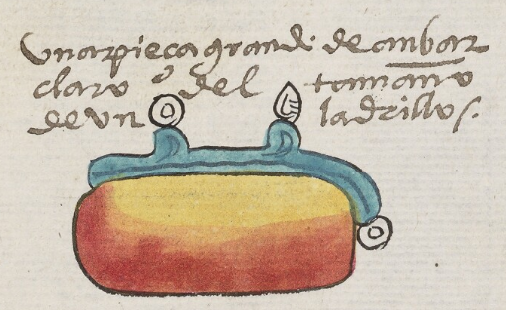 una pieça grande de anbar
claro del tamaño
de un ladrillo.